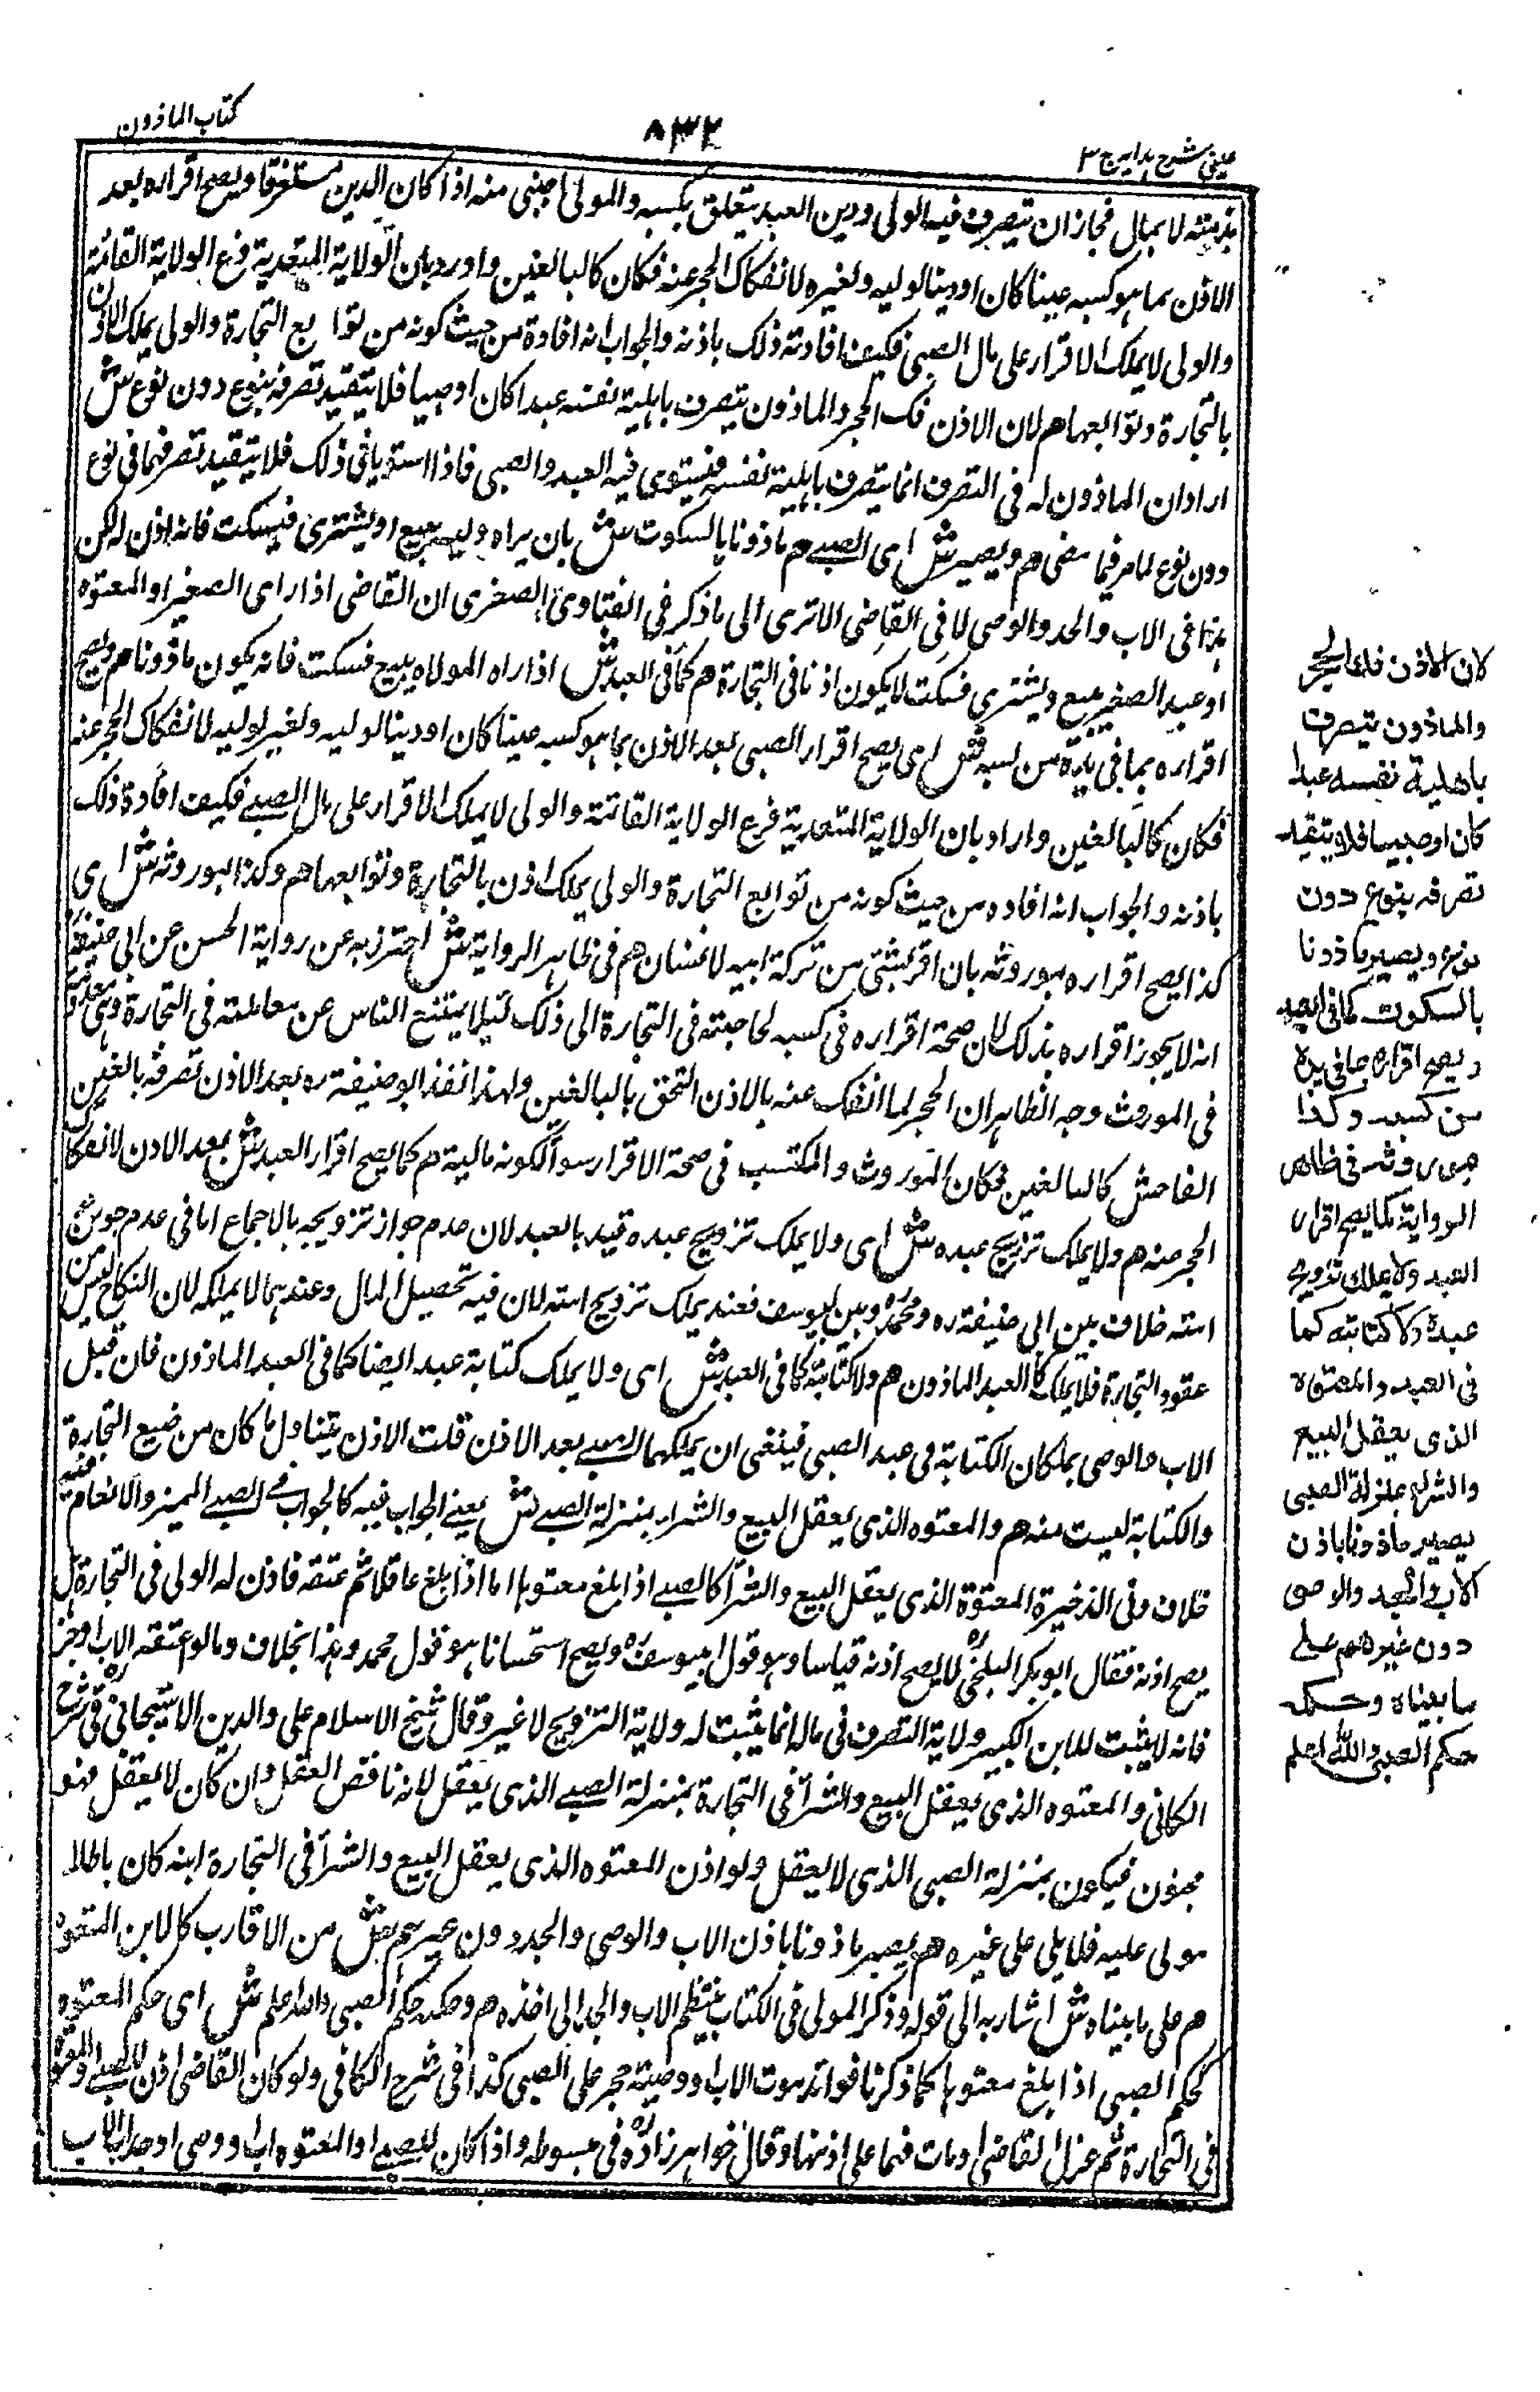 كتاب الماذون
٨٣٢
عينى شرح هدايه ج ٣
بذمته لا بمال فجاز ان يتصرف فيه الولى ودين العبد يتعلق بكسبه والمولى اجنبى منه اذا كان الدين مستغرقا ويصح اقراره بعد
الاذن بما هو كسبه عينا كان او دينا لوليه ولغيره لانفكاك الحجر عنه فكان كالبالغين واورد بان الولاية المتعدية فرع الولاية القائمة
والولى لا يملك الاقرار على مال الصبى فكيف افادته ذلك باذنه والجواب انه افادة من حيث كونه من توابع التجارة والولى يملك الاذن
بالتجارة وتوابعها هم لان الاذن فك الحجر والماذون يتصرف باهلية نفسه عبدا كان او صبيا فلا يتقيد تصرفه بنوع دون نوع ش
اراد ان الماذون له فى التصرف انما يتصرف باهلية نفسه فيستوى فيه العبد والصبى فاذا استويا فى ذلك فلا يتقيد تصرفهما فى نوع
دون نوع لما مر فيما مضى هم ويصير ش اى الصبى هم ماذونا بالسكوت ش بان يراه وليه يبيع او يشترى فيسكت فانه اذن له لكن
هذا فى الاب والجد والوصى لا فى القاضى الا ترى الى ما ذكر فى الفتاوى الصغرى ان القاضى اذا راى الصغير او المعتوه
او عبد الصغير يبيع ويشترى فسكت لا يكون اذنا فى التجارة هم كما فى العبد ش اذا راه المولاه يبيع فسكت فانه يكون ماذونا هم ويصح
اقراره بما فى يده من كسبه ش اى يصح اقرار الصبى بعد الاذن بما هو كسبه عينا كان او دينا لوليه ولغير لوليه لانفكاك الحجر عنه
فكان كالبالغين واراد بان الولاية المتعدية فرع الولاية القائمة والولى لا يملك الاقرار على مال الصبى فكيف افادة ذلك
باذنه والجواب انه افاده من حيث كونه من توابع التجارة والولى يملك اذن بالتجارة وتوابعها هم وكذا بموروثه ش اى
كذا يصح اقراره بموروثه بان اقر بشئ من تركة ابيه لانسان هم فى ظاهر الرواية ش احترز به عن رواية الحسن عن ابى حنيفة
انه لا يجوز اقراره بذلك لان صحة اقراره فى كسبه لحاجته فى التجارة الى ذلك لئلا يمتنع الناس عن معاملته فى التجارة وهى معدومة
فى الموروث وجه الظاهر ان الحجر لما انفك عنه بالاذن التحق بالبالغين ولهذا نفذ ابو حنيفة ره بعد الاذن تصرفه بالغبن
الفاحش كالبالغين فكان الموروث والمكتسب فى صحة الاقرار سوأ لكونه ماليه هم كما يصح اقرار العبد ش بعد الاذن لانفكاك
الحجر منه هم ولا يملك تزويج عبده ش اى ولا يملك تزويج عبده قيد بالعبد لان عدم جواز تزويجه بالاجماع اما فى عدم جواز تزويج
امته خلاف بين ابى حنيفة ره ومحمد ره وبين ابى يوسف فعنده يملك تزويج امته لان فيه تحصيل المال وعندهما لا يملكه لان النكاح ليس من
عقود التجارة فلا يملك كالعبد الماذون هم ولا كتابته كما فى العبد ش اى ولا يملك كتابة عبد ايضا كما فى العبد الماذون فان قيل
الاب والوصى يملكان الكتابة فى عبد الصبى فينبغى ان يملكها الصبى بعد الاذن قلت الاذن يتناول ما كان من ضيع التجارة
والكتابة ليست منه هم والمعتوه الذى يعقل البيع والشراء بمنزلة الصبى ش يعنى الجواب فيه كالجواب فى الصبى المميز ولا نعلم فيه
خلاف وفى الذخيرة المعتوة الذى يعقل البيع والشرأ كالصبى اذا بلغ معتوها اما اذا بلغ عاقلا ثم عته فاذن له الولى فى التجارة هل
يصح اذنه فقال ابو بكر البلخى ره لا يصح اذنه قياسا وهو قول ابى يوسف ره ويصح استحسانا هو قول محمد وهذا بخلاف ما لو عته الاب او جن
فانه لا يثبت للابن الكبير ولاية التصرف فى ماله انما يثبت له ولاية التزويج لا غير وقال شيخ الاسلام على والدين الاسبيجابى ره فى شرح
الكافى والمعتوه الذى يعقل البيع والشرأ فى التجارة بمنزلة الصبى الذى يعقل لانه ناقص العقل وان كان لا يعقل فهو
مجنون فيكون بمنزلة الصبى الذى لا يعقل ولو اذن المعتوه الذى يعقل البيع والشرأ فى التجارة ابنه كان باطلا
مولى عليه فلا يلى على غيره هم يصير ماذونا باذن الاب والوصى والجد دون غيرهم ش من الاقارب كالابن المعتوه
هم على ما بيناه ش اشار به الى قوله وذكر المولى فى الكتاب ينتظم الاب والجد الى اخذه هم وحكمه حكم الصبى والله اعلم ش اى حكم المعتوه
كحكم الصبى اذا بلغ معتوها كما ذكرنا فوائد بموت الاب ووصيته حجر على الصبى كذا فى شرح الكافى ولو كان القاضى اذن للصبى والمعتوه
فى التجارة ثم عزل القاضى او مات فهما على اذنهما وقال خواهر زاده ره فى مبسوطه واذا كان للصبى او المعتوه اب او وصى او جد اب الاب
لان الاذن فك الحجر
والماذون يتصرف
باهلية نفسه عبدا
كان او صبيا فلا يتقيد
تصرفه بنوع دون
نوع ويصير ماذونا
بالسكوت كما فى العبد
ويصح اقراره بما فى يده
من كسبه وكذا
بموروثه فى ظاهر
الرواية كما يصح اقرار
العبد ولا يملك تزويج
عبده ولا كتابته كما
فى العبد والمعتوه
الذى يعقل البيع
والشراء بمنزلة الصبى
يصير ماذونا باذن
الاب والجد والوصى
دون غيرهم على
ما بيناه وحكمه
حكم الصبى والله اعلم